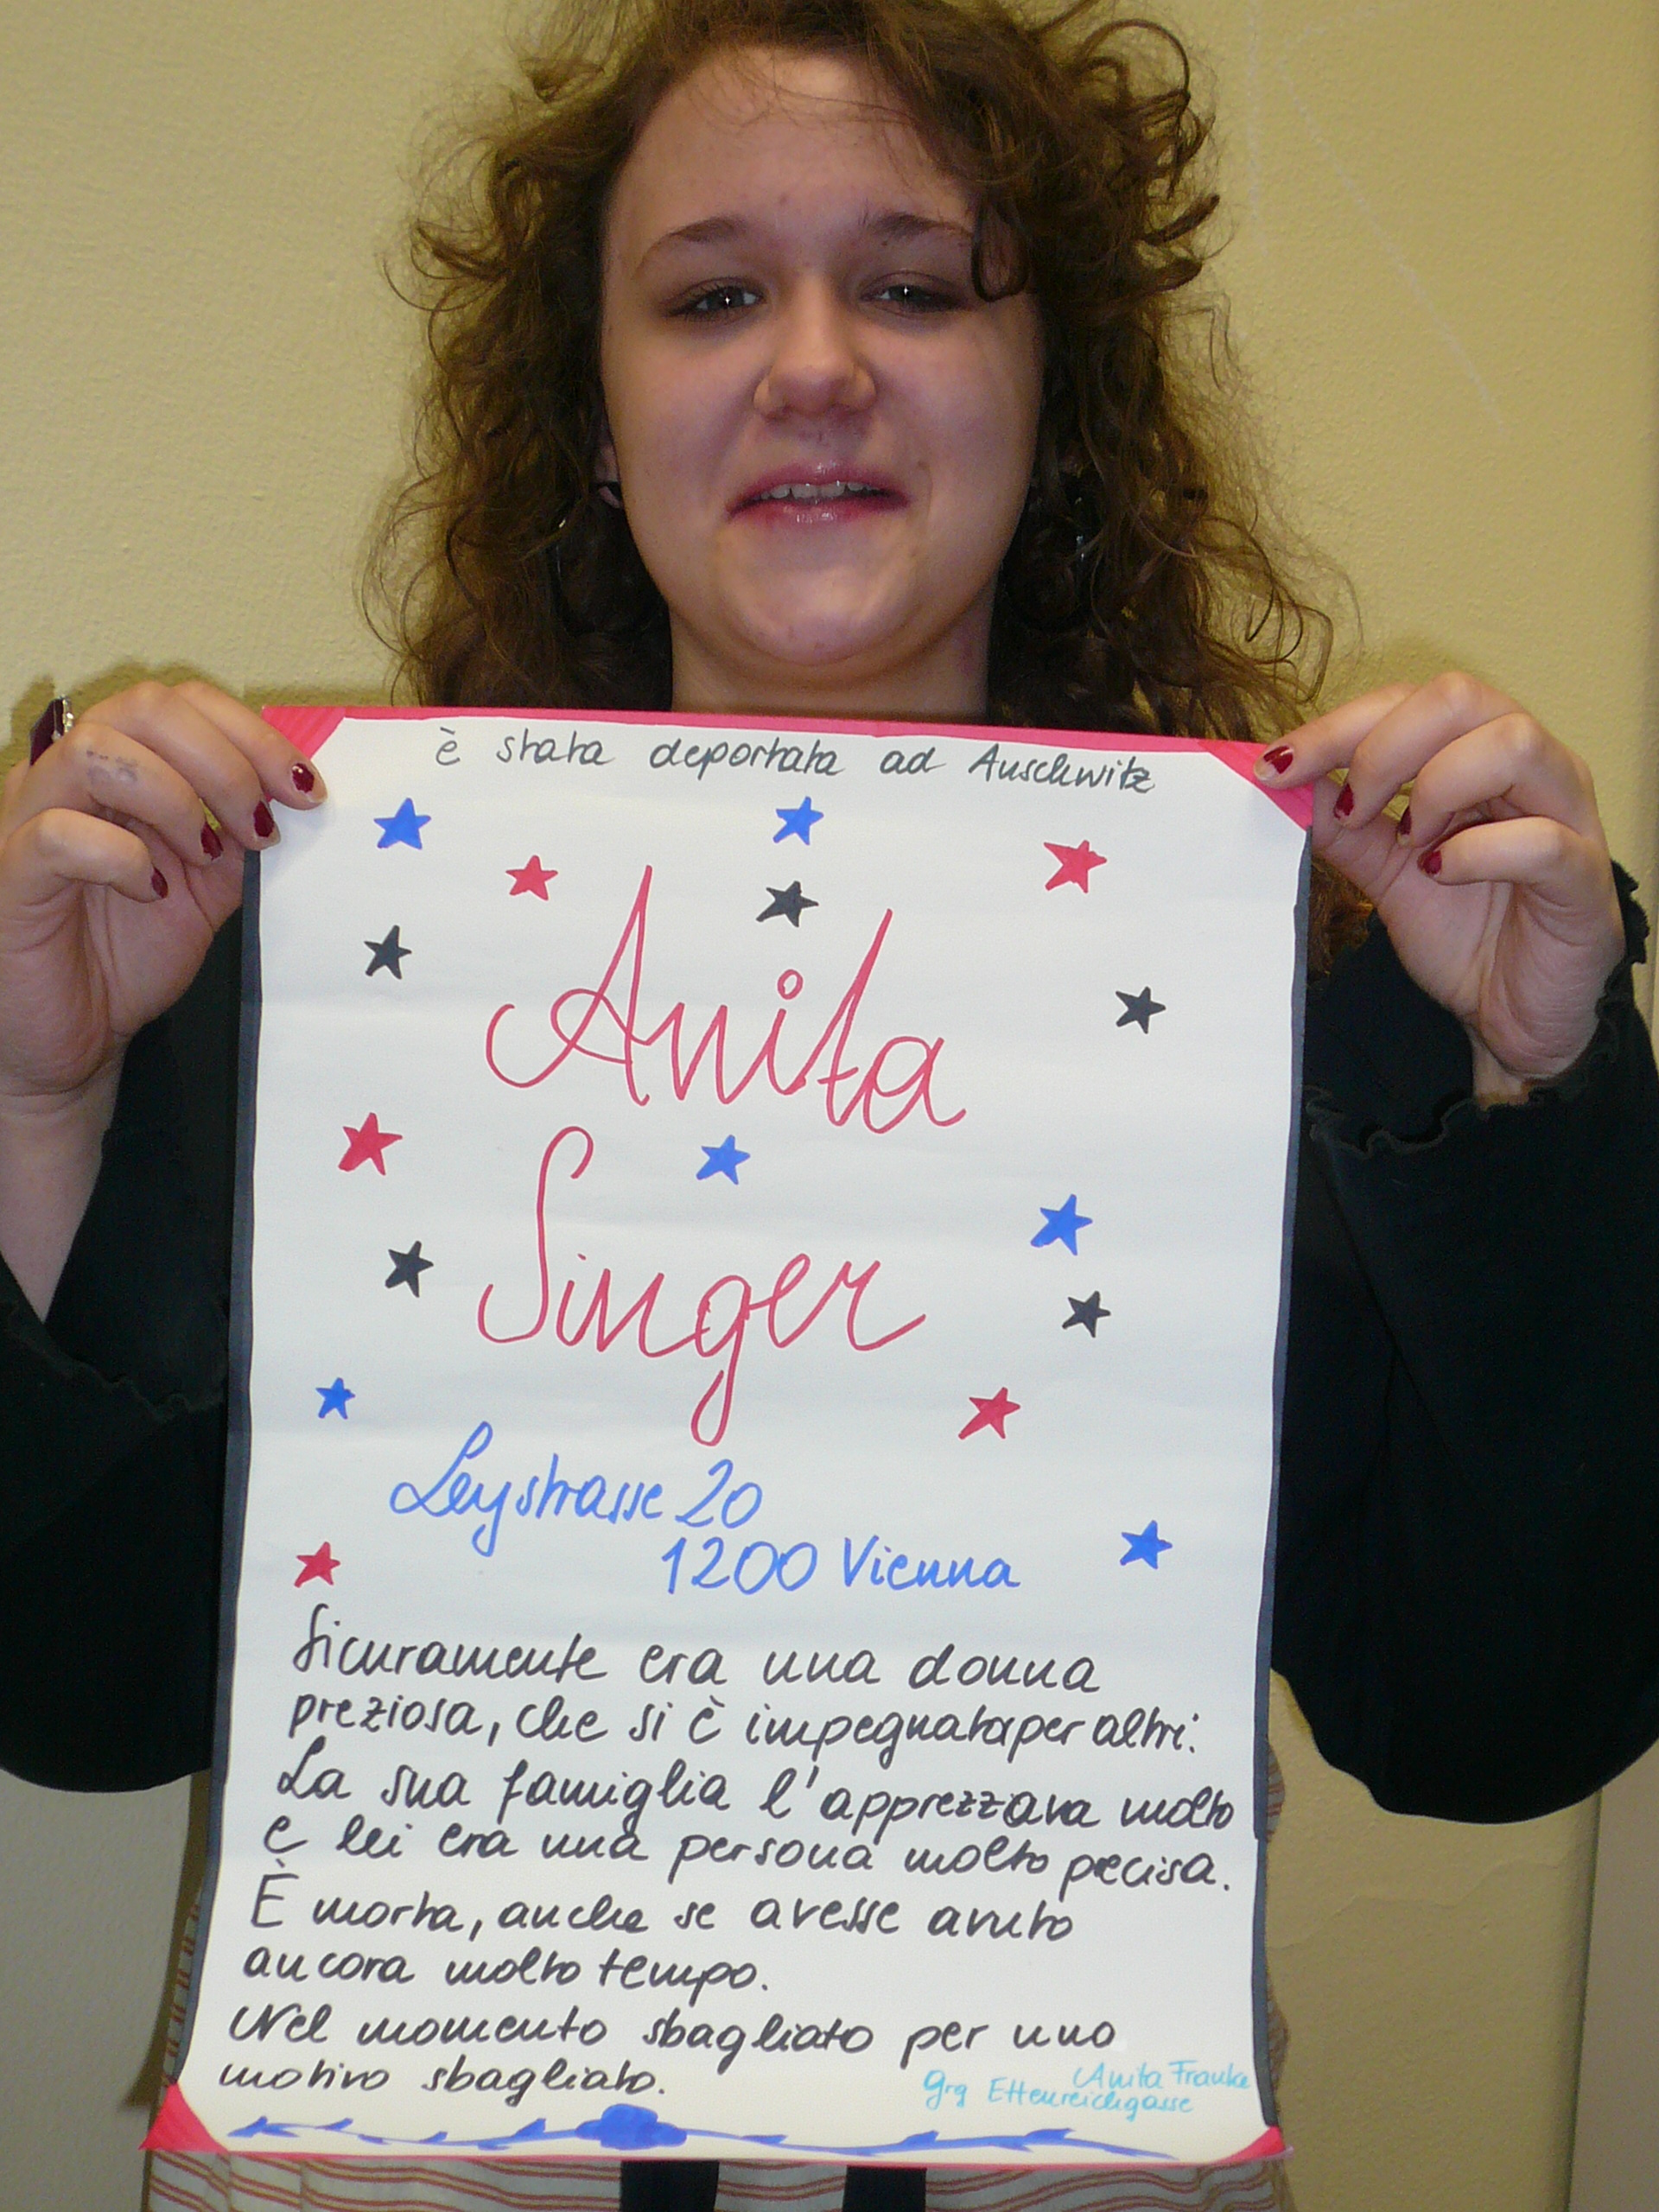 è stata deportata ad Auschwitz
Anita
Singer
Leystrasse 20
1200 Vienna
Sicuramente era una donna
preziosa, che si è impegnata per altri.
La sua famiglia l'apprezzava molto
e lei era una persona molto precisa.
È morta, anche se avesse avuto
ancora molto tempo.
Nel momento sbagliato per uno
motivo sbagliato.
Anita Franke
grg Ettenreichgasse